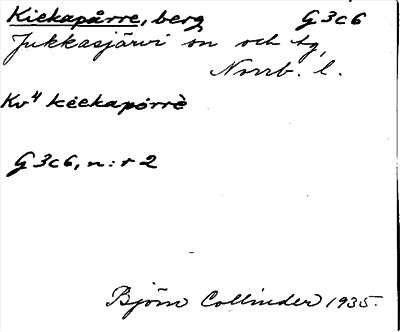 Kiekapårre, berg G3c6
Jukkasjärvi sn och tg,
Norrb. l.
Kv⁴ kèekapórrè
G3c6, n:r 2
Björn Collinder 1935.